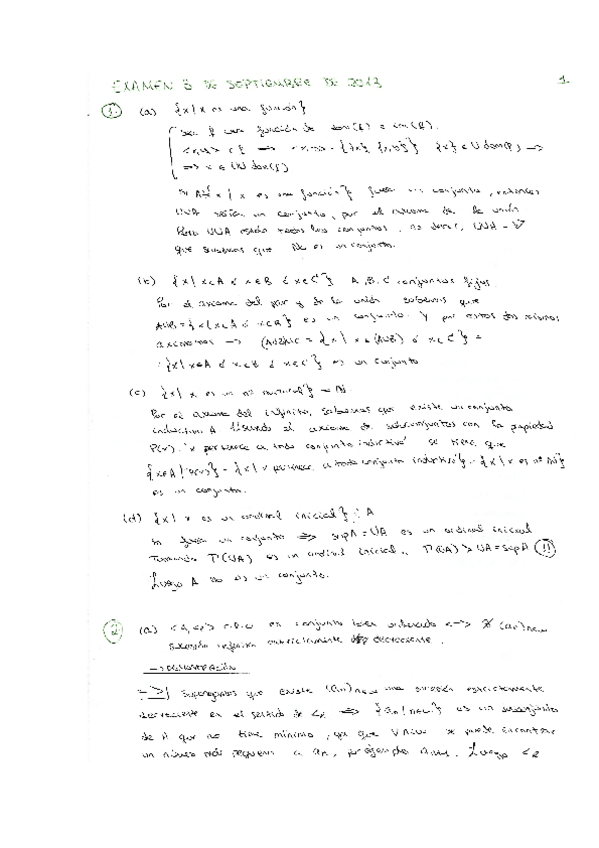 EXAMEN 3 DE SEPTIEMBRE DE 2013 1.
1. (a) {x | x es una función}
Sea f una función de dom(f) e im(f).
∈ f ⟹ {x} ∈ U dom(f) ⟹
⟹ x ∈ dom(f)
Si A = {x | x es una función} fuera un conjunto, entonces
UUA sería un conjunto, por el axioma de la unión
Pero UUA están todos los conjuntos, es decir, UUA = V
que sabemos que No es un conjunto.
(b) {x | x∈A ó x∈B ó x∈C} A, B, C conjuntos fijos
Por el axioma del par y de la unión sabemos que
AUB = {x | x∈A ó x∈B} es un conjunto. Y por estos dos mismos
axiomas ⟶ (AUB)UC = {x | x∈(AUB) ó x∈C} =
{x | x∈A ó x∈B ó x∈C} es un conjunto
(c) {x | x es un nº natural} = ℕ
Por el axioma del infinito, sabemos que existe un conjunto
inductivo A. Usando el axioma de subconjuntos con la propiedad
P(x): "x pertenece a todo conjunto inductivo" se tiene que
{x∈A | P(x)} = {x | x pertenece a todo conjunto inductivo} = {x | x es nº ℕ}
es un conjunto.
(d) {x | x es un ordinal inicial} : A
Si fuera un conjunto ⟹ supA = UA es un ordinal inicial
Tomando Γ(UA) es un ordinal inicial, Γ(UA) > UA = supA (!!)
Luego A no es un conjunto.
2. (a) es un conjunto bien ordenado ⟺ ∄ (an)n∈ω
sucesión infinita estrictamente decreciente.
→ DEMOSTRACIÓN
⟹| Supongamos que existe (an)n∈ω una sucesión estrictamente
decreciente en el sentido de <R ⟹ {an | n∈ω} es un subconjunto
de A que no tiene mínimo, ya que ∀n∈ω se puede encontrar
un número más pequeño a an, por ejemplo an+1. Luego <R